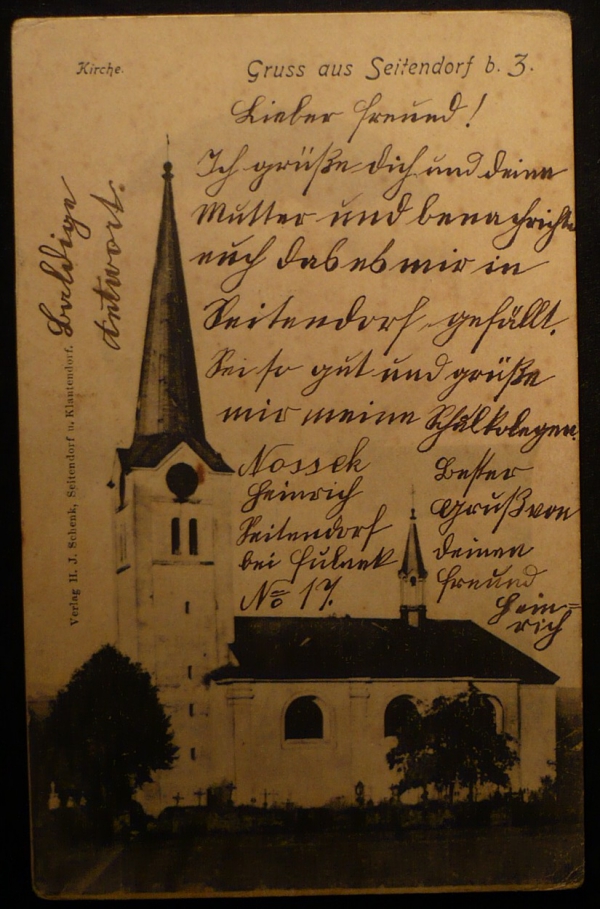 Kirche.
Gruss aus Seitendorf b. Z.
Lieber Freund!
Ich grüße dich und deine
Mutter und benachrichte
euch das es mir in
Seitendorf gefällt.
Sei so gut und grüße
mir meine Schulkolegen.
Nossek
Heinrich
Seitendorf
bei Fulnek
No 17.
Bester
Gruß von
deinen
Freund
Hein=
rich
Baldige
Antwort.
Verlag H. J. Schenk, Seitendorf u. Klantendorf.